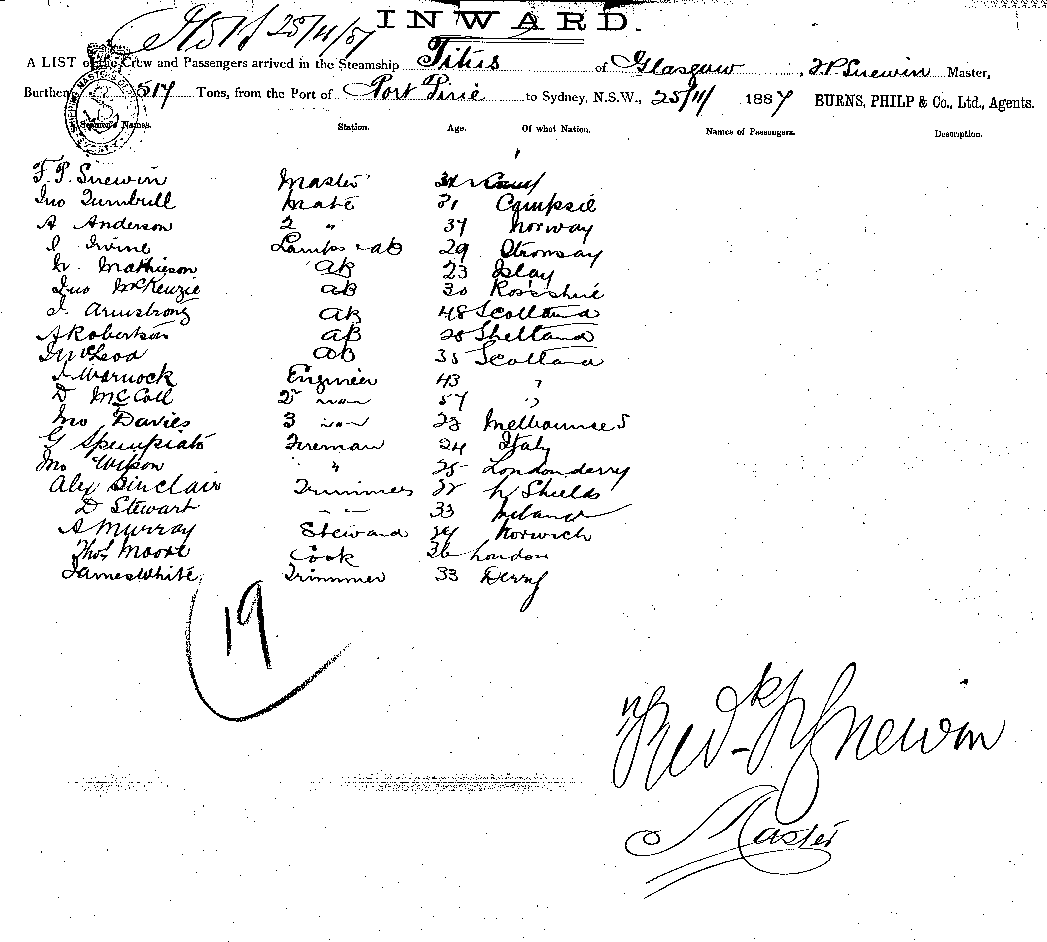 INWARD.
25/11/87
A LIST of the Crew and Passengers arrived in the Steamship Titus of Glasgow, F.P. Snewin Master,
Burthen 517 Tons, from the Port of Port Pirie to Sydney, N.S.W., 25/11 1887 BURNS, PHILP & Co., Ltd., Agents.
Seamen's Names. Station. Age. Of what Nation. Names of Passengers. Description.
F. P. Snewin Master
Jno Turnbull Mate 31 Campsie
A Anderson 2 " 37 Norway
J Irvine Lamps & AB 29 Stronsay
Mathieson AB 23 Islay
Jno McKenzie AB 30 Rossshire
J. Armstrong AB 48 Scotland
A Robertson AB 28 Shetland
McLeod AB 35 Scotland
J Warnock Engineer 43 "
D McColl 2 57 "
Jno Davies 3 23 Melbourne
G Fireman 24 Italy
Jno Wilson " 25 Londonderry
Alex Sinclair Trimmers N Shields
D Stewart 33 Ireland
A Murray Steward Norwich
Thos Moore Cook 36 London
James White Trimmer 33 Derry
19
Fredk P Snewin
Master